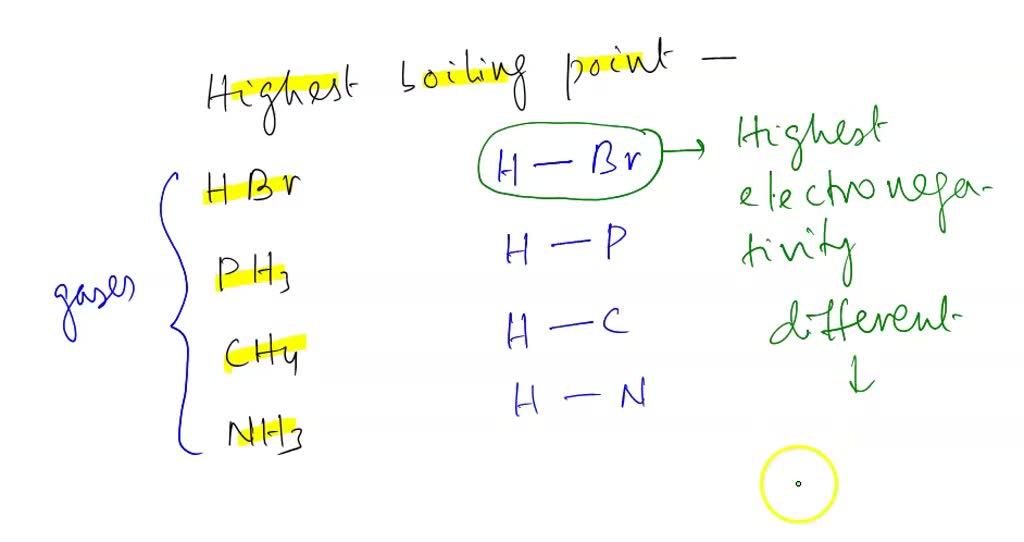 Highest boiling point —
HBr
PH3
CH4
NH3
gases
H — Br
H — P
H — C
H — N
→ Highest
electronega-
tivity
different
↓